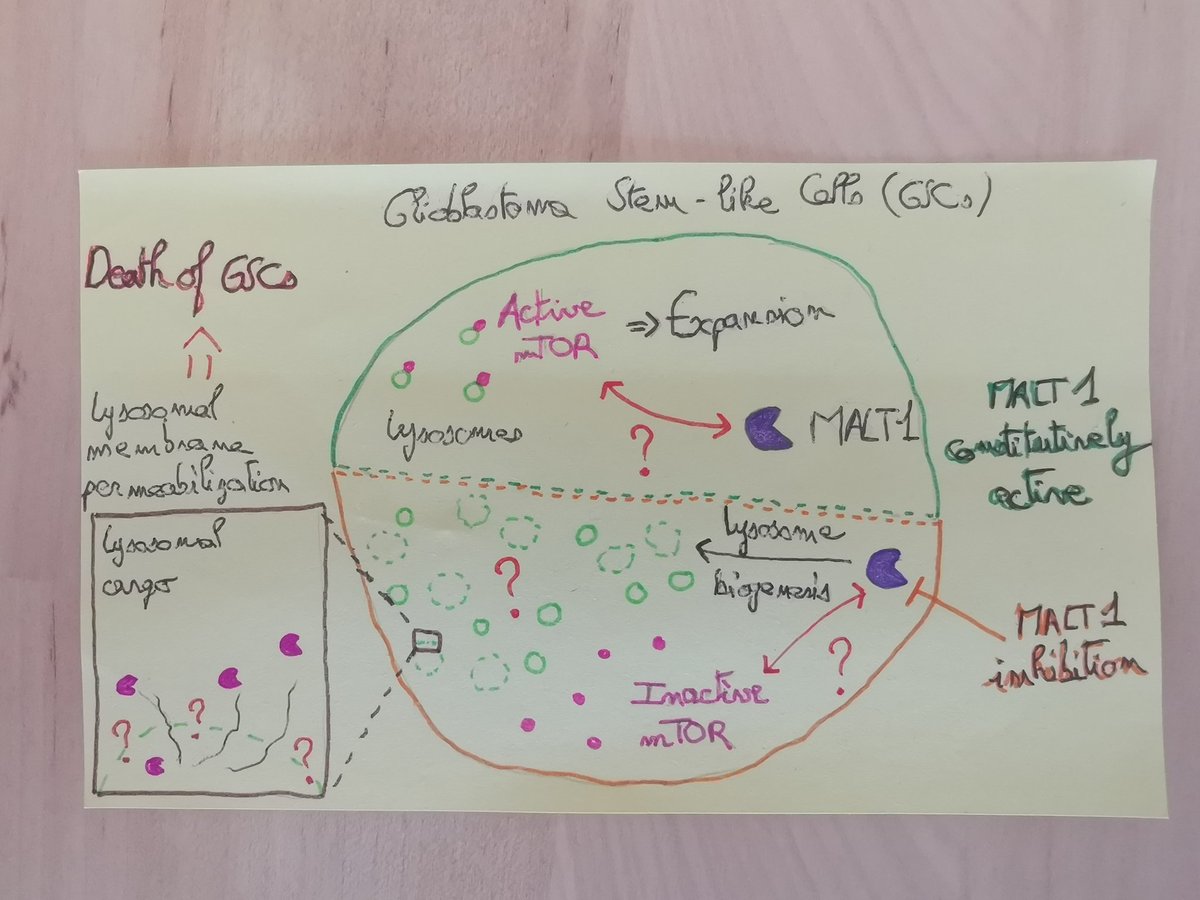 Glioblastoma Stem-like Cells (GSCs)
Death of GSCs
Lysosomal
membrane
permeabilization
Lysosomal
cargo
?
?
?
Active
mTOR
=> Expansion
Lysosomes
?
MALT1
MALT1
constitutively
active
Lysosome
biogenesis
?
Inactive
mTOR
?
MALT1
inhibition